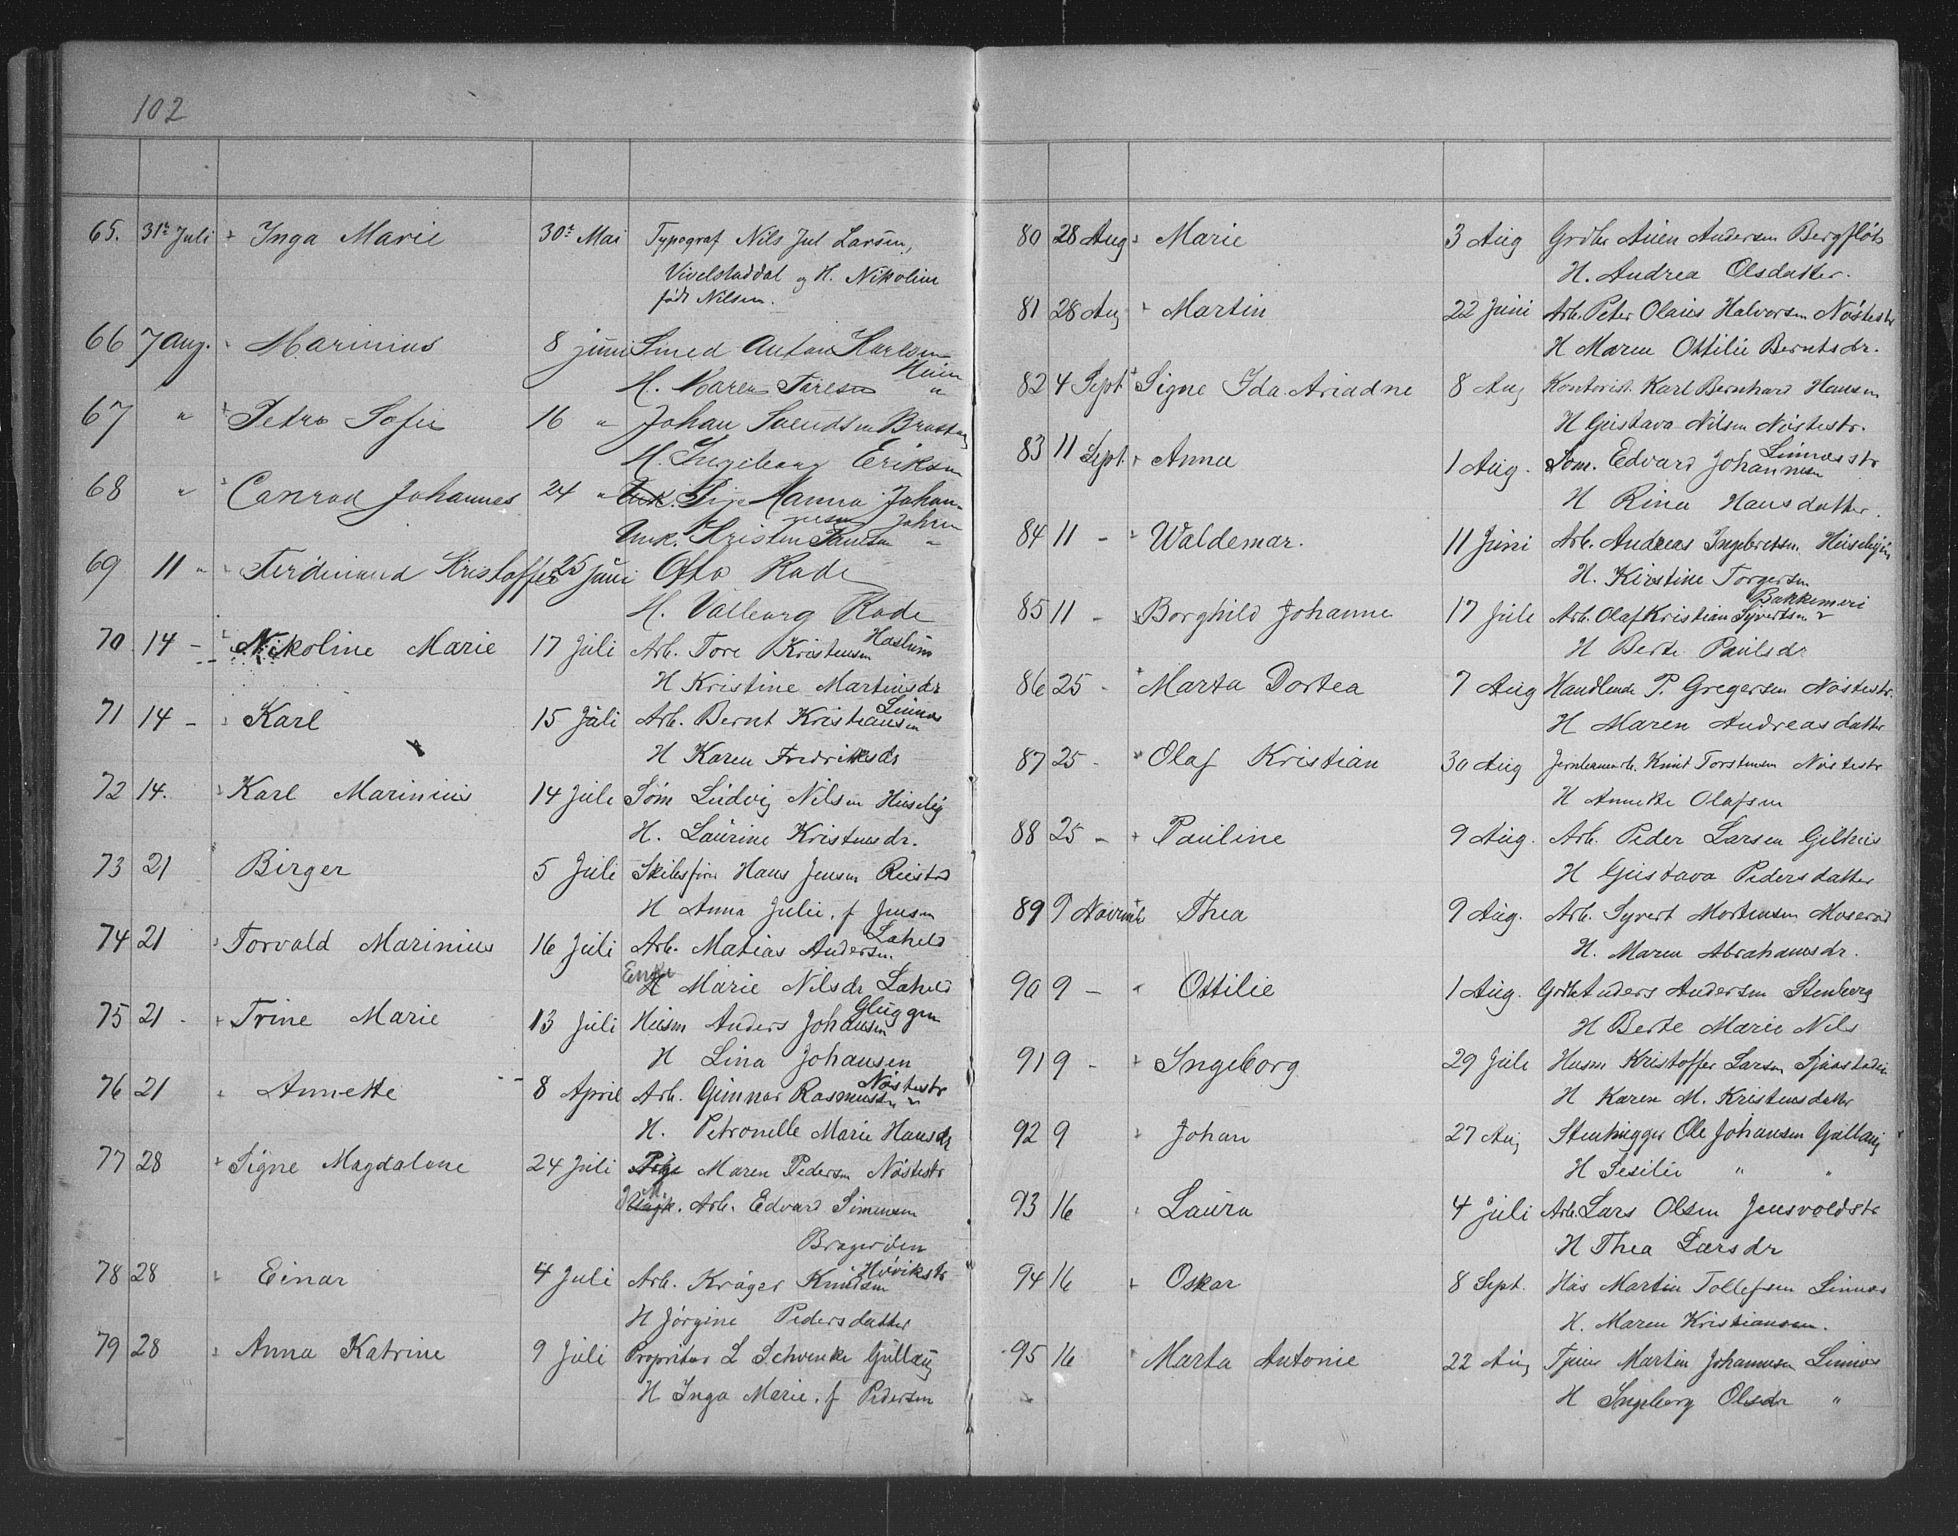 102
65. 31te Juli Inga Marie 30te Mai Typograf Nils Jul Larsen,
Vivelstaddal og H. Nikoline
født Nilsen.
66 7 Aug. Marinius 8 juni Smed Anton Karlsen
H. Karen
67 " Petra Sofie 16 " Johan Svendsen
H. Ingeborg Eriksen
68 " Conrad Johannes 24 " Pige Hanna Johan-
Unk. Kristen Paulsen "
69 11 " Ferdinand Kristoffer 25 juni Otto Rade
H. Valborg Rade
70 14 - Nikoline Marie 17 Juli Arb. Tore Kristensen Haslum
H Kristine Martinsdr
71 14 - Karl 15 Juli Arb. Bernt Kristiansen Linnes
H Karen Fredriksdr
72 14. Karl Marinius 14 Juli Søm Ludvig Nilsen
H. Laurine Kristensdr.
73 21 Birger 5 Juli Skibsfører Hans Jensen
H Anna Julie. f Jensen
74 21 Torvald Marinius 16 Juli Arb. Matias Andersen Lahell
Enke
H Marie Nilsdr Lahell
75 21 - Trine Marie 13 Juli Husm Anders Johansen Gluggen
H Lina Johansen
76 21 Annette 8 April Arb. Gunnar Rasmussen Nøstestr
H. Petronelle Marie Hansdr
77 28 Signe Magdalene 24 Juli Pige Maren Pedersen Nøstestr
Arb. Edvard Simensen
Brager
78 28 Einar 4 Juli Arb. Kråger Knudsen Høvikstr
H Jørgine Pedersdatter
79 28 Anna Katrine 9 Juli Proprietær L Schwenke Gullaug
H Inga Marie. f Pedersen
80 28 Aug Marie 3 Aug Grdbr Andersen Bergfløt
H. Andrea Olsdatter.
81 28 Aug Martin 22 Juni Arb. Peter Olaus Halvorsen Nøstestr
H Maren Ottilie Berntsdr.
82 4 Sept Signe Ida Ariadne 8 Aug Kontorist. Karl Bernhard Hansen
H Gustava Nilsen Nøstestr.
83 11 Sept. Anna 1 Aug. Søm. Edvard Johannesen Linnesstr
H Rina Hansdatter.
84 11 - Waldemar. 11 Juni Arb. Andreas Ingebretsen.
H. Kirstine Torgersen
85 11 - Borghild Johanne 17 Juli Arb. Olaf Kristian Syvertsen Bakkemeri
H Berte Paulsdr
86 25 - Marta Dortea 7 Aug Handlende P. Gregersen Nøstestr.
H Maren Andreasdatter
87 25 - Olaf Kristian 30 Aug Jernbanearb. Knut Torstensen Nøstestr
H Annette Olafsen
88 25 - Pauline 9 Aug. Arb. Peder Larsen Gilhus
H Gustava Pedersdatter
89 9 Novemb Thea 9 Aug. Arb. Syvert Mortensen Moserød
H. Maren Abrahamsdr.
90 9 - Ottilie 1 Aug. Grdbr Anders Andersen Stenberg
H Berte Marie Nils
91 9 - Ingeborg 29 Juli Husm Kristoffer Larsen
H Karen M. Kristensdatter
92 9 Johan 27 Aug Stenhugger Ole Johansen Gullaug
H Sesilie " "
93 16 Laura 4 Juli Arb. Lars Olsen Jensvoldstr
H Thea Larsdr
94 16 Oskar 8 Sept. Martin Tollefsen Linnes
H. Maren Kristiansen.
95 16 Marta Antonie 22 Aug Martin Johannesen Linnes
H Ingeborg Olsdr "